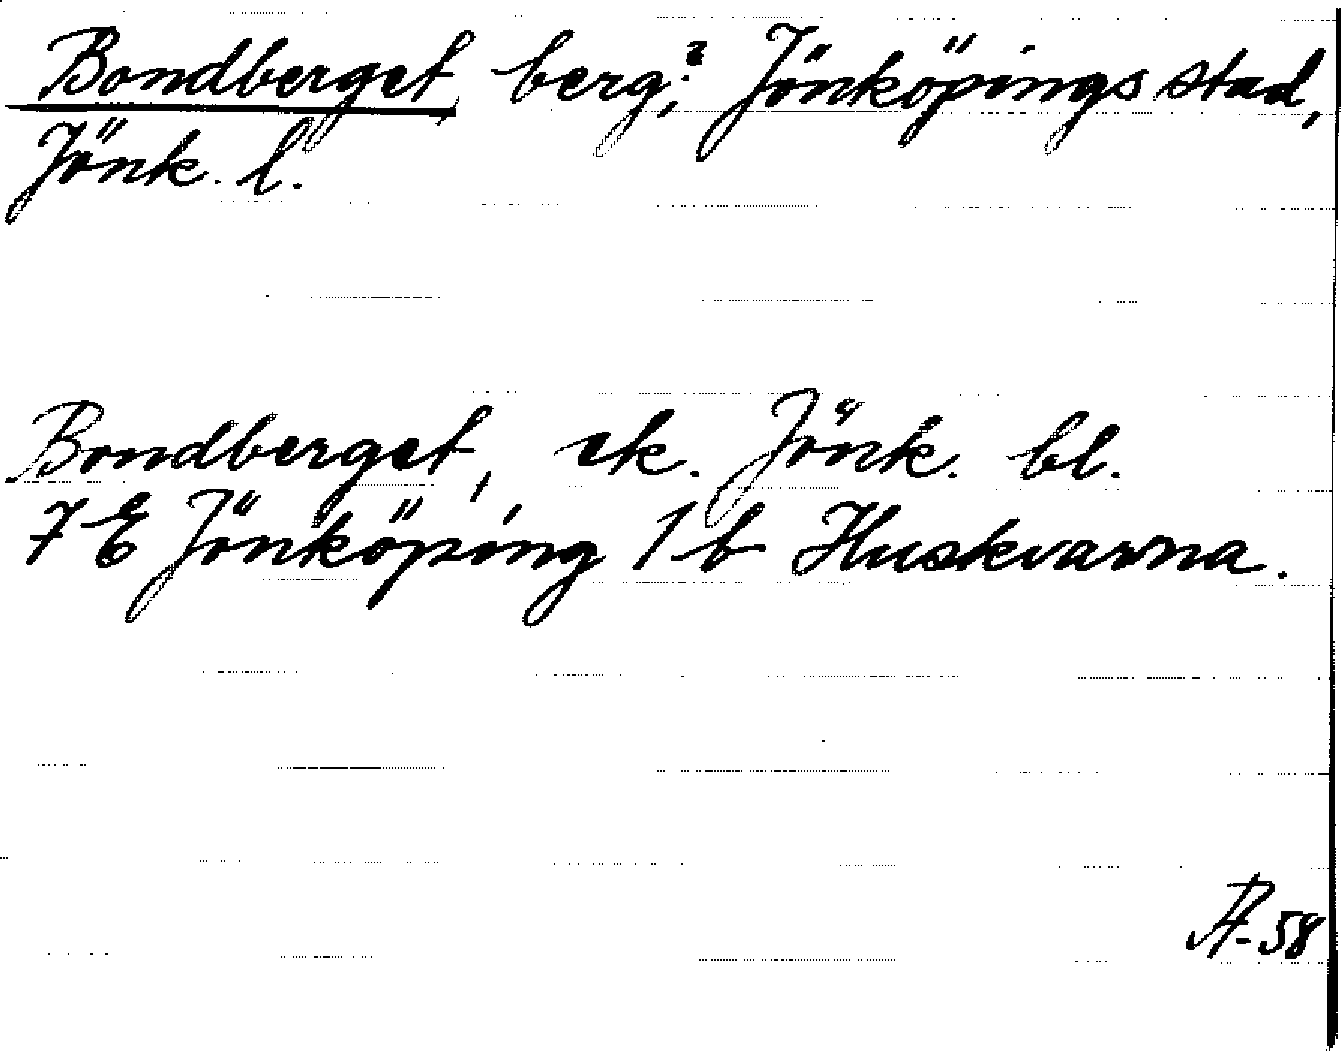 Bondberget, berg?, Jönköpings stad,
Jönk. l.
Bondberget, ek. Jönk. bl.
7 E Jönköping 1 b Huskvarna.
-58